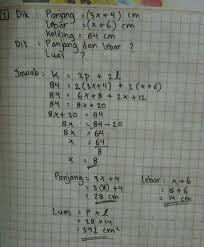 1 Dik Panjang = (3x+4) cm
Lebar = (x+6) cm
Keliling = 84 cm
Dit : Panjang dan lebar ?
Luas ?
Jawab : K = 2p + 2l
84 = 2(3x+4) + 2(x+6)
84 = 6x+8 + 2x+12
84 = 8x+20
8x+20 = 84
8x = 84-20
8x = 64
x = 64
8
x = 8
Panjang = 3x+4
= 3(8)+4
= 28 cm
lebar : x+6
= 8+6
= 14 cm
Luas = p x l
= 28 x 14
= 392 cm²